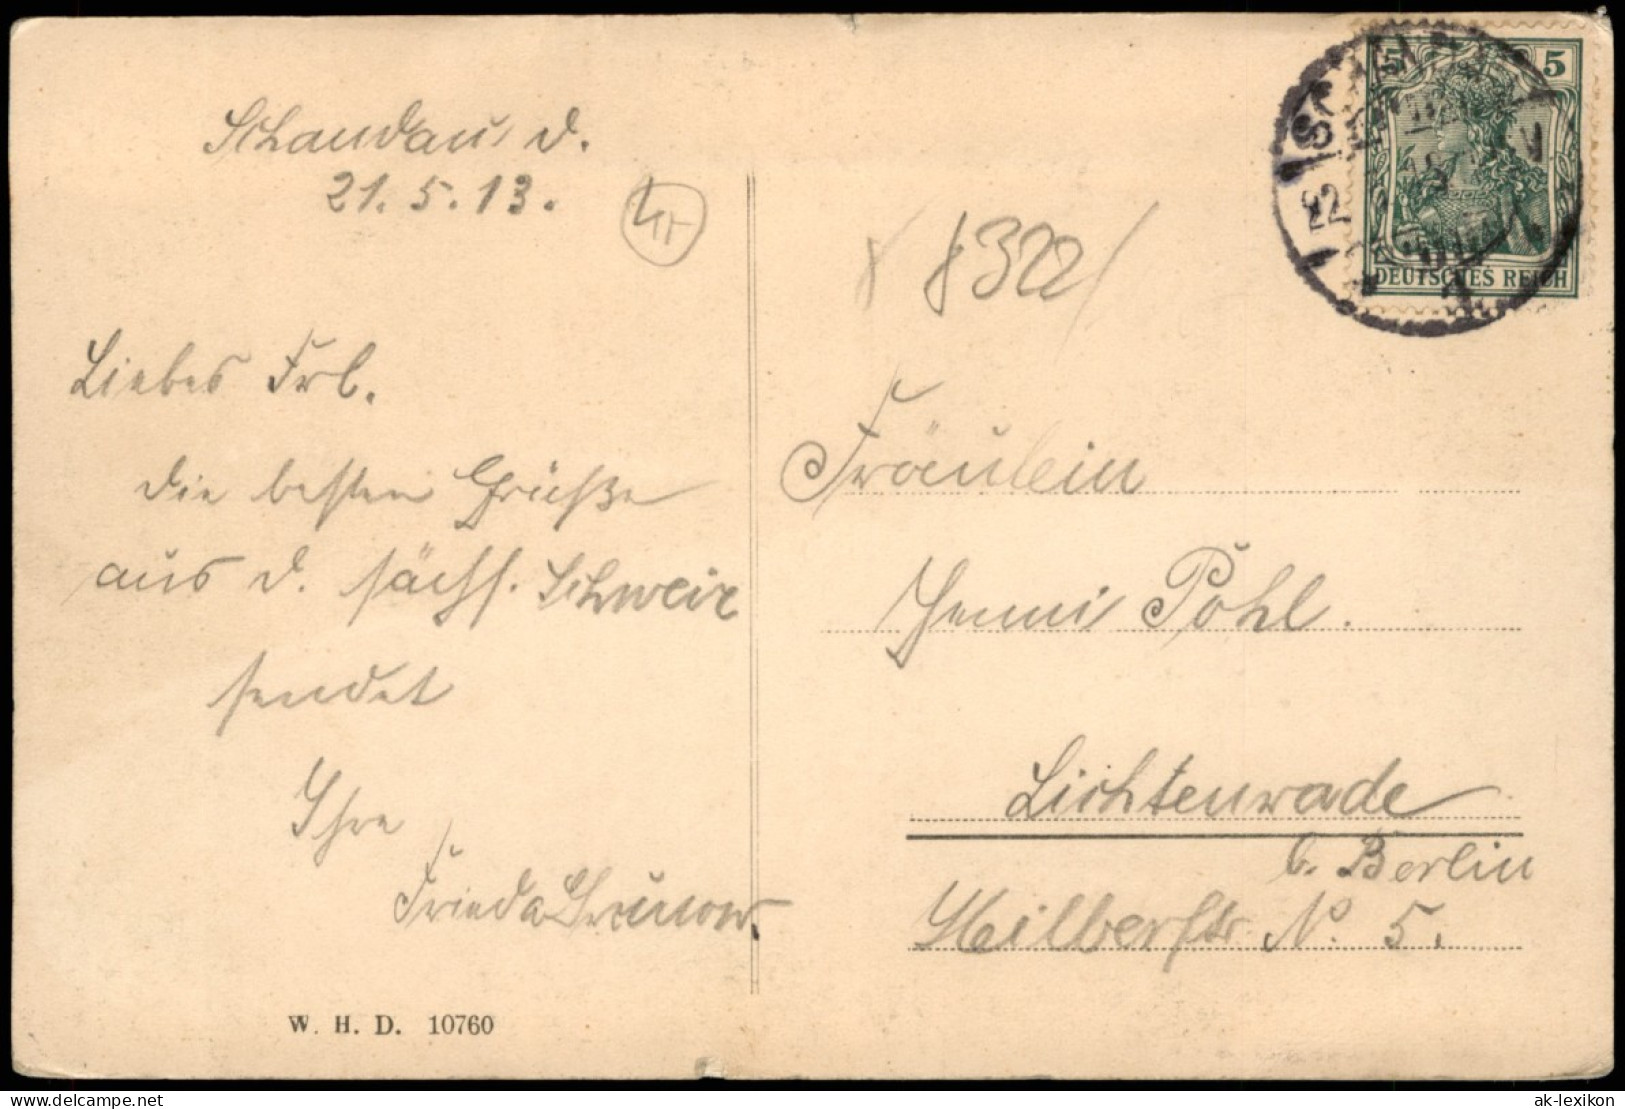 Schandau d.
21. 5. 13.
Liebes Frl.
die besten Grüße
aus d. sächs. Schweiz
sendet
Ihre
Frieda Grunow.
W. H. D. 10760
8320
5 5
DEUTSCHES REICH
22
Fräulein
Jenni Pohl.
Lichtenrade
b. Berlin
Hilbertstr. N. 5.
delcampe.net
ak-lexikon